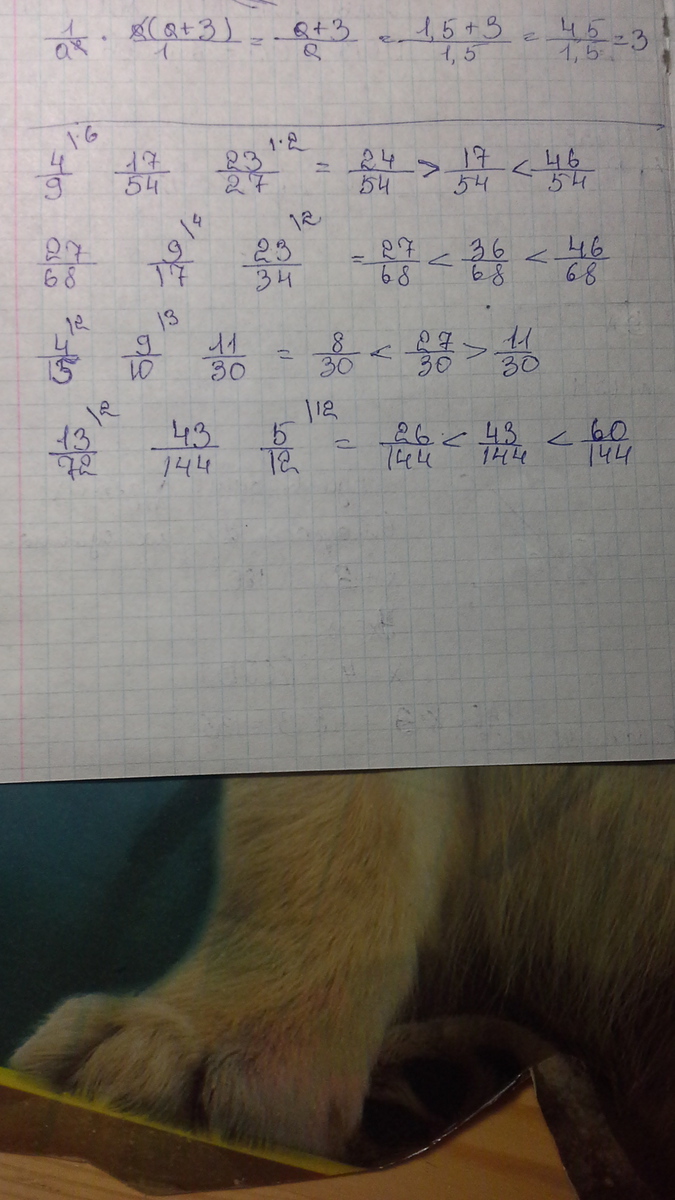 1/a² · a(a+3)/1 = a+3/a = 1,5+3/1,5 = 4,5/1,5 = 3
4/9 \·6 17/54 23/27 \·2 = 24/54 > 17/54 < 46/54
27/68 9/17 \4 23/34 \2 = 27/68 < 36/68 < 46/68
4/15 \2 9/10 \3 11/30 = 8/30 < 27/30 > 11/30
13/72 \2 43/144 5/12 \12 = 26/144 < 43/144 < 60/144